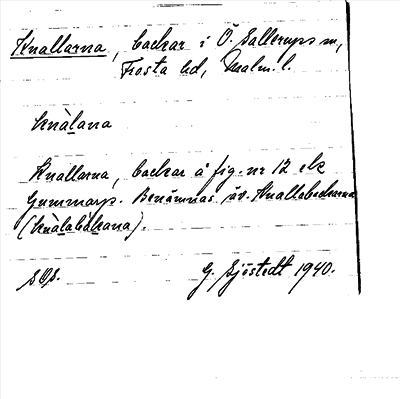 Knallarna, backar i Ö. Sallerups sn,
Frosta hd, Malm. l.
knàlana
Knallarna, backar å fig. nr 12 ek
Gummarp. Benämnas äv. Knallabackarna
(knàlabakana).
G. Sjöstedt 1940.